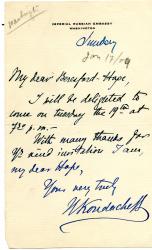 IMPERIAL RUSSIAN EMBASSY
WASHINGTON
Sunday
Jan 17/09
My dear Beresford-Hope,
I will be delighted to
come on tuesday the 19th at
7.30 p.m. –
With many thanks for
yr kind invitation I am,
my dear Hope,
Yours very truly